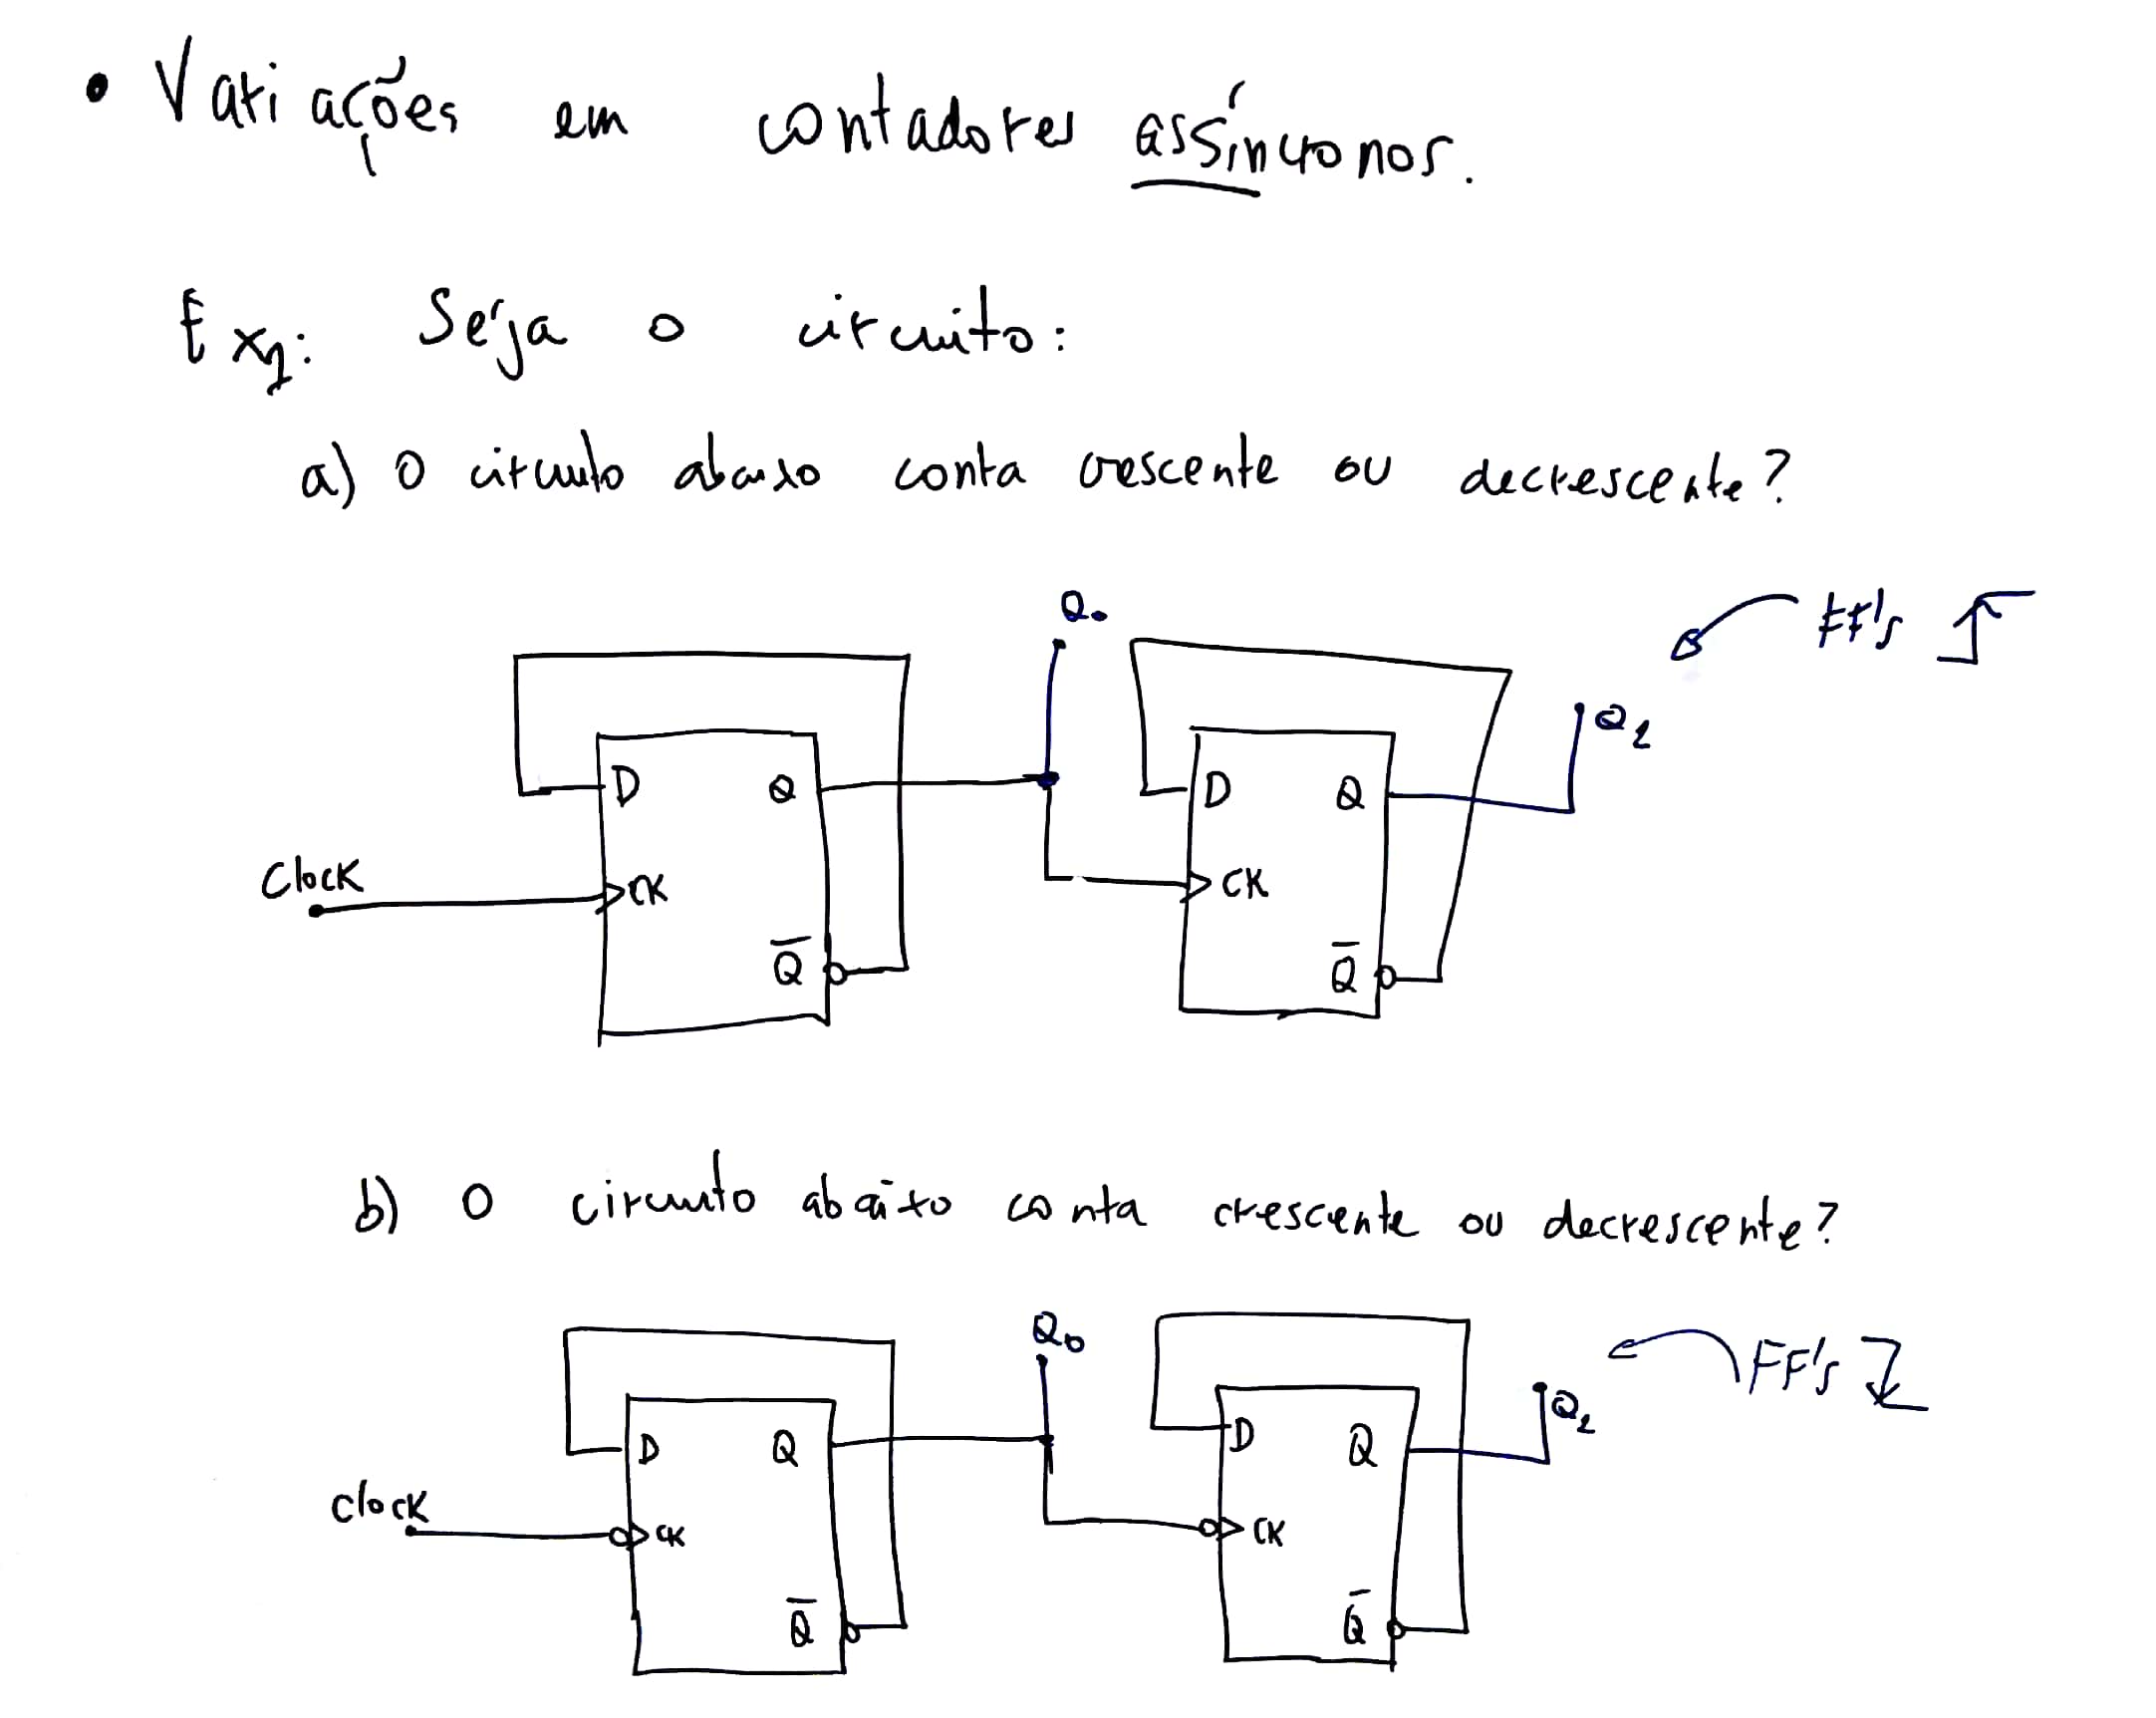 • Variações em contadores assíncronos.
Ex1: Seja o circuito:
a) O circuito abaixo conta crescente ou decrescente?
Q0
FF's
Q1
D Q
D Q
Clock
CK
CK
Q̅
Q̅
b) O circuito abaixo conta crescente ou decrescente?
Q0
FF's
Q1
D Q
D Q
Clock
CK
CK
Q̅
Q̅